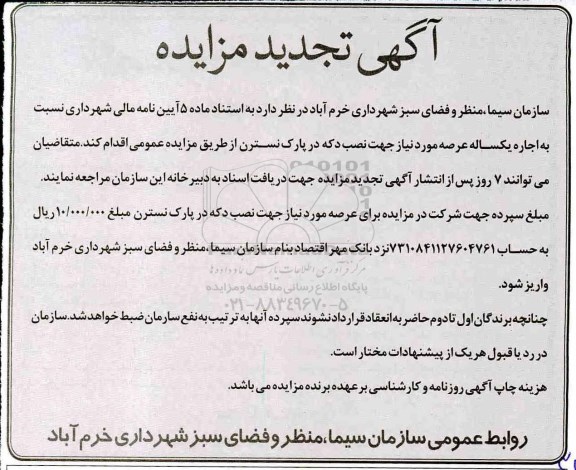 آگهی تجدید مزایده
سازمان سیما،منظر و فضای سبز شهرداری خرم آباد در نظر دارد به استناد ماده ۵ آیین نامه مالی شهرداری نسبت
به اجاره یکساله عرصه مورد نیاز جهت نصب دکه در پارک نسترن از طریق مزایده عمومی اقدام کند.متقاضیان
می توانند ۷ روز پس از انتشار آگهی تجدید مزایده جهت دریافت اسناد به دبیرخانه این سازمان مراجعه نمایند.
مبلغ سپرده جهت شرکت در مزایده برای عرصه مورد نیاز جهت نصب دکه در پارک نسترن مبلغ ۱۰/۰۰۰/۰۰۰ ریال
به حساب ۷۳۱۰۸۴۱۱۲۷۶۰۴۷۶۱ نزد بانک مهر اقتصاد بنام سازمان سیما،منظر و فضای سبز شهرداری خرم آباد
مرکز فرآوری اطلاعات پارس نماد داده‌ها
پایگاه اطلاع رسانی مناقصه و مزایده
واریز شود.
۰۲۱-۸۸۳۴۹۶۷۰-۵
چنانچه برندگان اول تا دوم حاضر به انعقاد قرارداد نشوند سپرده آنها به ترتیب به نفع سارمان ضبط خواهد شد.سازمان
در رد یا قبول هر یک از پیشنهادات مختار است.
هزینه چاپ آگهی روزنامه و کارشناسی بر عهده برنده مزایده می باشد.
روابط عمومی سازمان سیما،منظر و فضای سبز شهرداری خرم آباد